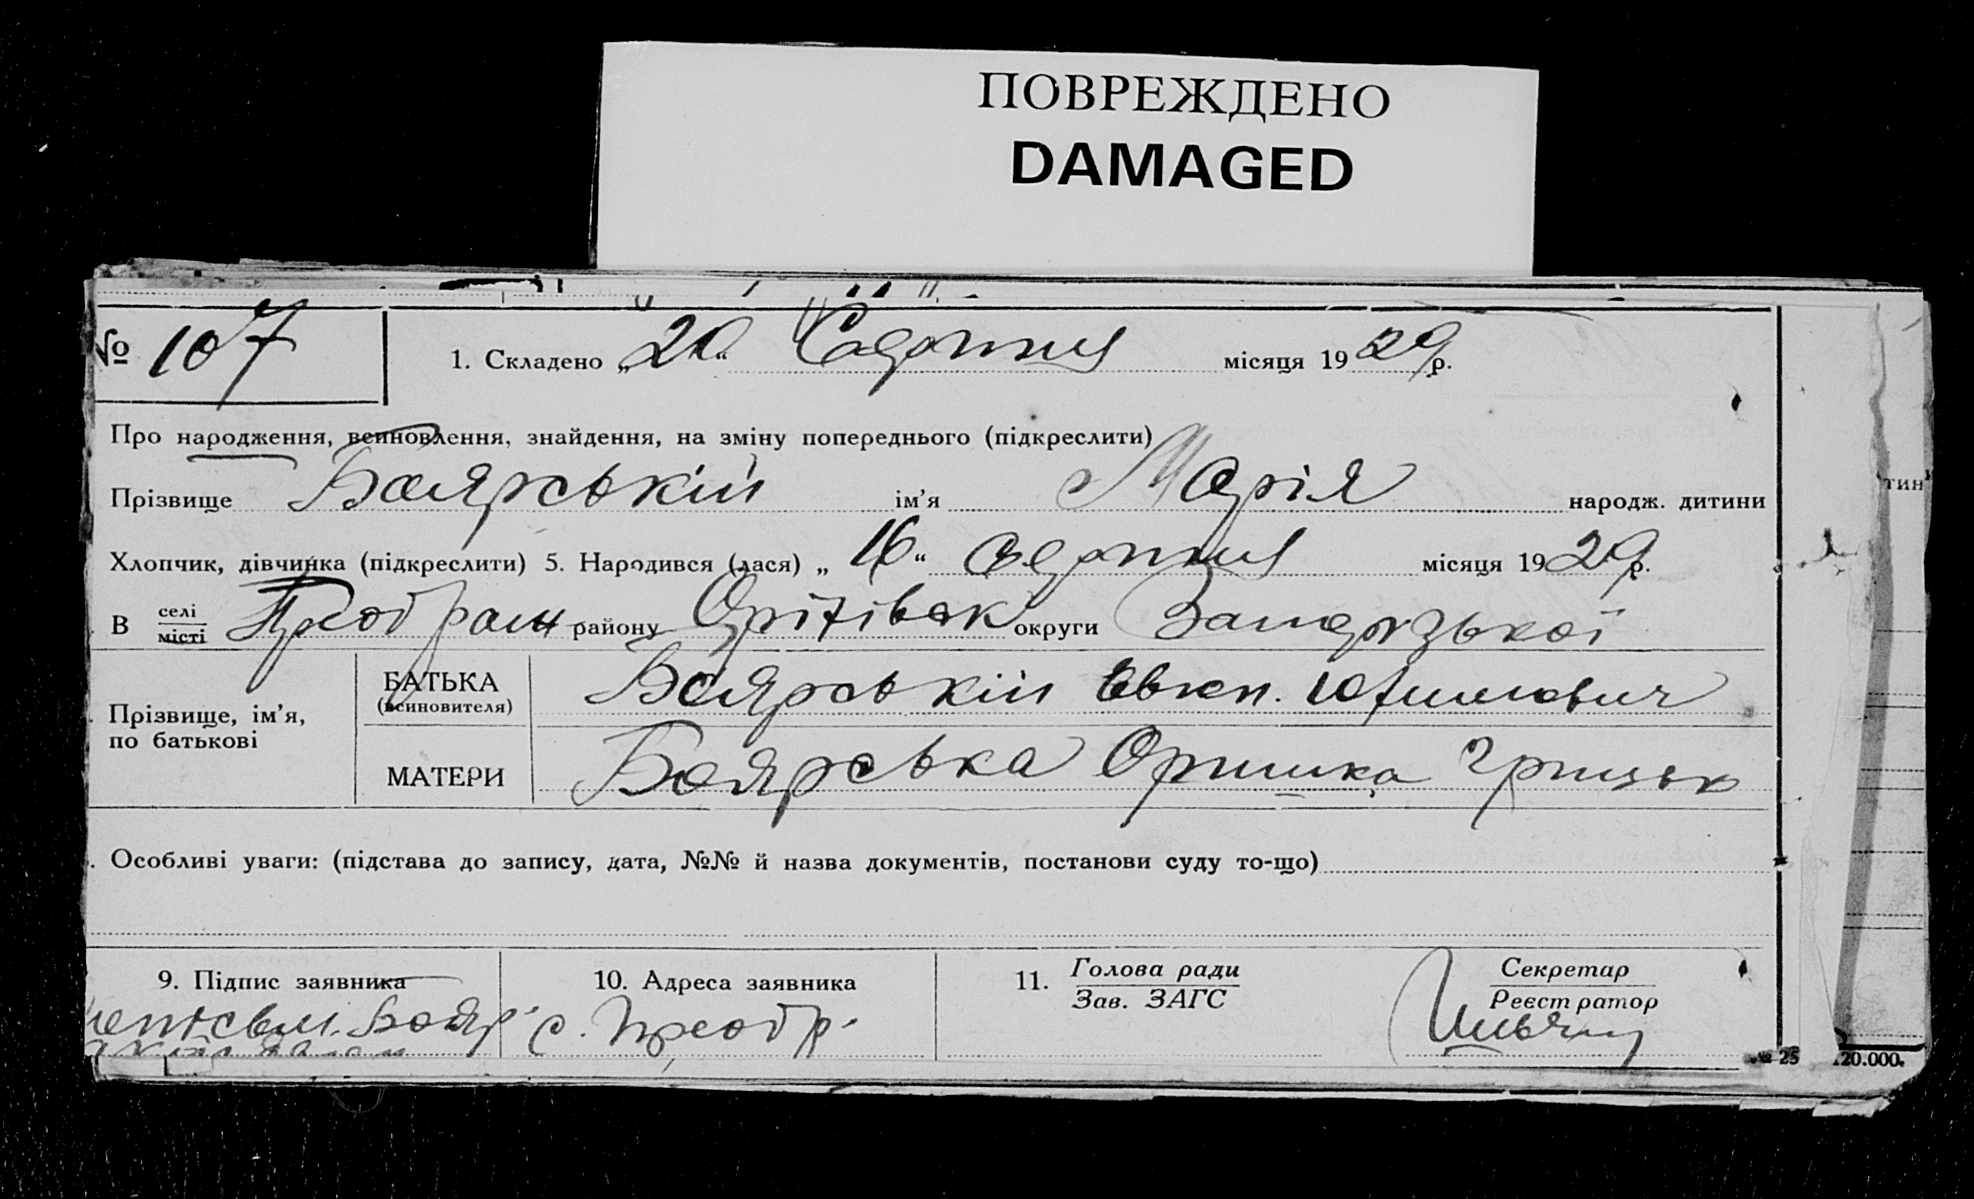 ПОВРЕЖДЕНО
DAMAGED
№ 107
1. Складено „20“ Серпня місяця 1929 р.
Про народження, всиновлення, знайдення, на зміну попереднього (підкреслити)
Прізвище Боярській ім’я Марія народж. дитини
тин
Хлопчик, дівчинка (підкреслити) 5. Народився (лася) „16“ серпня місяця 1929 р.
В селі місті Преображ району Оріхівськ округи Запорізької
Прізвище, ім’я, по батькові
БАТЬКА (всиновителя) Боярській Євген. Юхимович
МАТЕРИ Боярська Оришка Грицьк
Особливі уваги: (підстава до запису, дата, №№ й назва документів, постанови суду то-що)
9. Підпис заявника
10. Адреса заявника
11. Голова ради
Зав. ЗАГС
Секретар
Реєстратор
Бояр.
с. Преобр.
25
20.000.